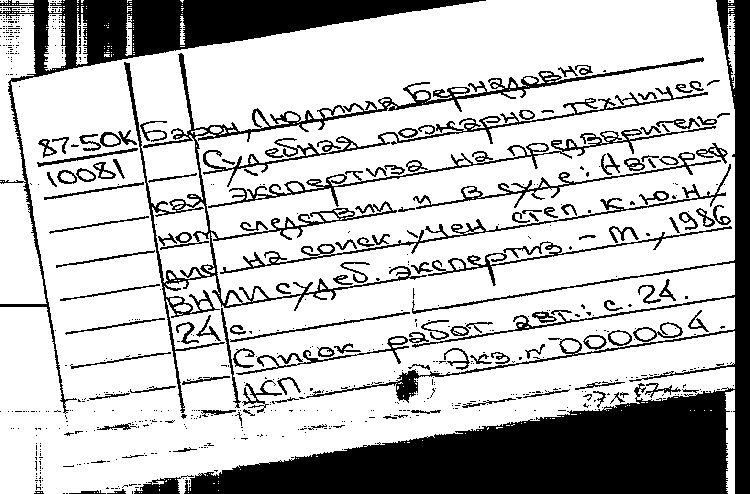 87-50К Барон, Людмила Бернадовна.
10081 Судебная пожарно-техничес-
кая экспертиза на предваритель-
ном следствии и в суде: Автореф.
дис. на соиск. учен. степ. к.ю.н. /
ВНИИ судеб. экспертиз. - М., 1986
24 с.
Список работ авт.: с. 24.
ДСП. Экз. № 000004.